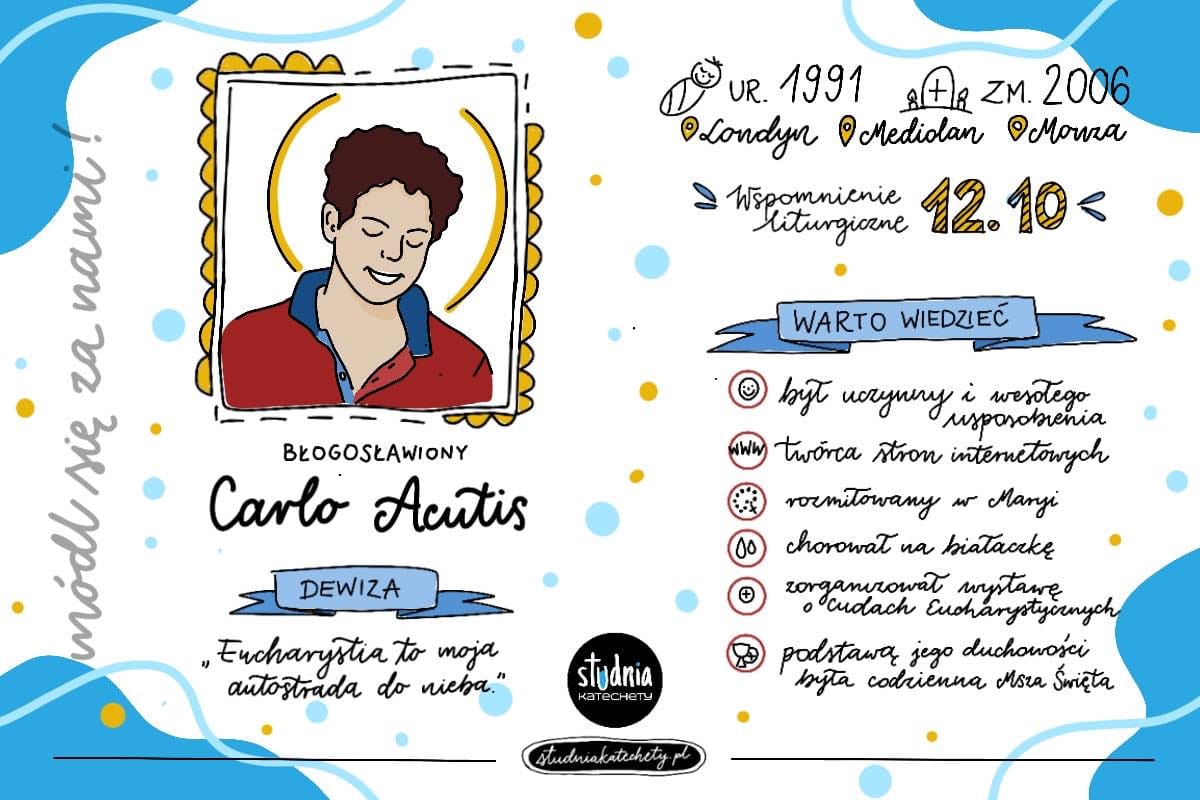 módl się za nami!
BŁOGOSŁAWIONY
Carlo Acutis
DEWIZA
„Eucharystia to moja
autostrada do nieba."
UR. 1991 ZM. 2006
Londyn Mediolan Monza
Wspomnienie
liturgiczne 12.10
WARTO WIEDZIEĆ
był uczynny i wesołego
usposobienia
WWW twórca stron internetowych
rozmiłowany w Maryi
chorował na białaczkę
zorganizował wystawę
o cudach Eucharystycznych
podstawą jego duchowości
była codzienna Msza Święta
studnia
KATECHETY
studniakatechety.pl